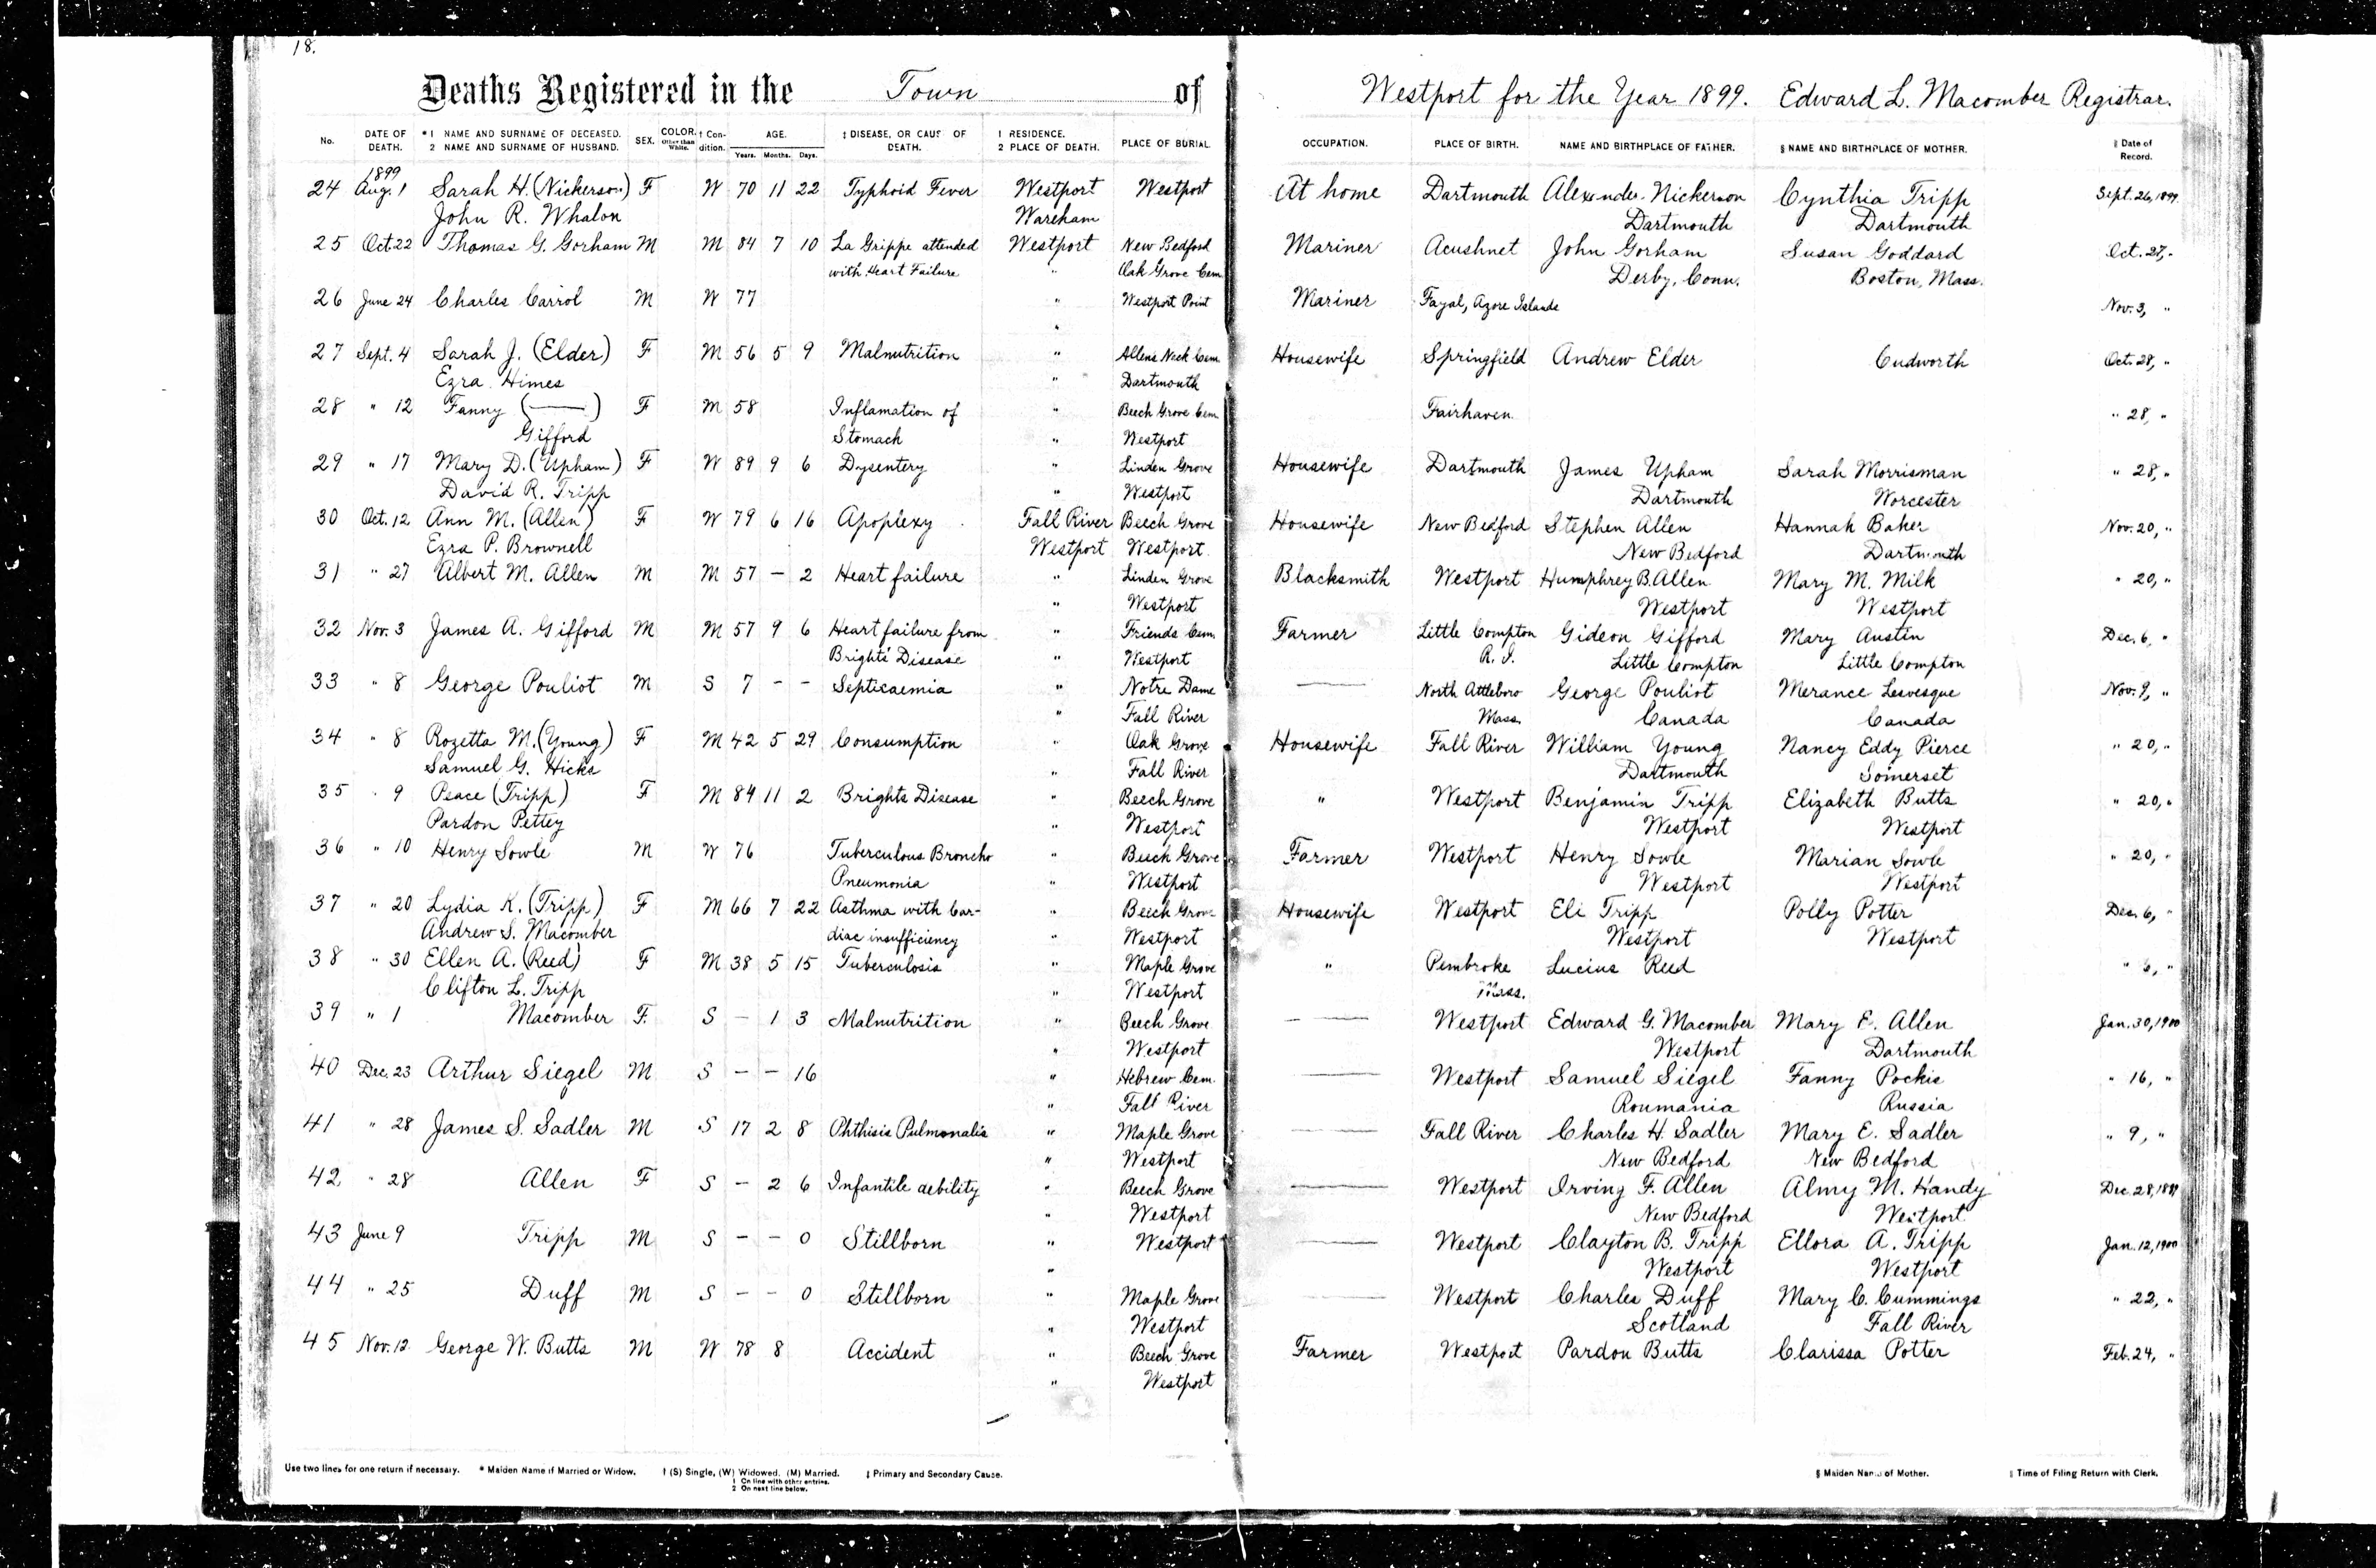 18.
Deaths Registered in the Town of Westport for the Year 1899. Edward L. Macomber Registrar.
No. DATE OF DEATH. *1 NAME AND SURNAME OF DECEASED. 2 NAME AND SURNAME OF HUSBAND. SEX. COLOR. Other than White. † Condition. AGE. Years. Months. Days. ‡ DISEASE, OR CAUSE OF DEATH. 1 RESIDENCE. 2 PLACE OF DEATH. PLACE OF BURIAL. OCCUPATION. PLACE OF BIRTH. NAME AND BIRTHPLACE OF FATHER. § NAME AND BIRTHPLACE OF MOTHER. ‖ Date of Record.
1899
24 Aug. 1 Sarah H. (Nickerson) F W 70 11 22 Typhoid Fever Westport Westport At home Dartmouth Alexander Nickerson Cynthia Tripp Sept. 26, 1899
John R. Whalon Wareham Dartmouth Dartmouth
25 Oct. 22 Thomas G. Gorham M M 84 7 10 La Grippe attended Westport New Bedford Mariner Acushnet John Gorham Susan Goddard Oct. 27, "
with Heart Failure " Oak Grove Cem Derby, Conn. Boston, Mass.
26 June 24 Charles Carrol M W 77 " Westport Point Mariner Fayal, Azore Islands Nov. 3, "
"
27 Sept. 4 Sarah J. (Elder) F M 56 5 9 Malnutrition " Allens Neck Cem Housewife Springfield Andrew Elder Cudworth Oct. 28, "
Ezra Himes " Dartmouth
28 " 12 Fanny (——) F M 58 Inflamation of " Beech Grove Cem Fairhaven " 28, "
Gifford Stomach " Westport
29 " 17 Mary D. (Upham) F W 89 9 6 Dysentery " Linden Grove Housewife Dartmouth James Upham Sarah Morrisman " 28, "
David R. Tripp " Westport Dartmouth Worcester
30 Oct. 12 Ann M. (Allen) F W 79 6 16 Apoplexy Fall River Beech Grove Housewife New Bedford Stephen Allen Hannah Baker Nov. 20, "
Ezra P. Brownell Westport Westport New Bedford Dartmouth
31 " 27 Albert M. Allen M M 57 – 2 Heart failure " Linden Grove Blacksmith Westport Humphrey B. Allen Mary M. Milk " 20, "
" Westport Westport Westport
32 Nov. 3 James A. Gifford M M 57 9 6 Heart failure from " Friends Cem. Farmer Little Compton Gideon Gifford Mary Austin Dec. 6, "
Brights' Disease " Westport R. I. Little Compton Little Compton
33 " 8 George Pouliot M S 7 – – Septicaemia " Notre Dame —— North Attleboro George Pouliot Merance Lesvesque Nov. 9, "
" Fall River Mass. Canada Canada
34 " 8 Rozetta M. (Young) F M 42 5 29 Consumption " Oak Grove Housewife Fall River William Young Nancy Eddy Pierce " 20, "
Samuel G. Hicks " Fall River Dartmouth Somerset
35 " 9 Peace (Tripp) F M 84 11 2 Brights Disease " Beech Grove " Westport Benjamin Tripp Elizabeth Butts " 20, "
Pardon Pettey " Westport Westport Westport
36 " 10 Henry Sowle M W 76 Tuberculous Broncho " Beech Grove Farmer Westport Henry Sowle Marian Sowle " 20, "
Pneumonia " Westport Westport Westport
37 " 20 Lydia K. (Tripp) F M 66 7 22 Asthma with Car- " Beech Grove Housewife Westport Eli Tripp Polly Potter Dec. 6, "
Andrew S. Macomber diac insufficiency " Westport Westport Westport
38 " 30 Ellen A. (Reed) F M 38 5 15 Tuberculosis " Maple Grove " Pembroke Lucius Reed " 6, "
Clifton L. Tripp " Westport Mass.
39 " 1 Macomber F. S – 1 3 Malnutrition " Beech Grove —— Westport Edward G. Macomber Mary E. Allen Jan. 30, 1900
" Westport Westport Dartmouth
40 Dec. 23 Arthur Siegel M S – – 16 " Hebrew Cem. —— Westport Samuel Siegel Fanny Pockis " 16, "
" Fall River Roumania Russia
41 " 28 James S. Sadler M S 17 2 8 Phthisis Pulmonalis " Maple Grove —— Fall River Charles H. Sadler Mary E. Sadler " 9, "
" Westport New Bedford New Bedford
42 " 28 Allen F S – 2 6 Infantile debility " Beech Grove —— Westport Irving F. Allen Almy M. Handy Dec. 28, 1899
" Westport New Bedford Westport
43 June 9 Tripp M S – – 0 Stillborn " Westport —— Westport Clayton B. Tripp Ellora A. Tripp Jan. 12, 1900
" Westport Westport
44 " 25 Duff M S – – 0 Stillborn " Maple Grove —— Westport Charles Duff Mary C. Cummings " 22, "
" Westport Scotland Fall River
45 Nov. 12 George W. Butts M W 78 8 Accident " Beech Grove Farmer Westport Pardon Butts Clarissa Potter Feb. 24, "
" Westport
Use two lines for one return if necessary. * Maiden Name if Married or Widow. † (S) Single, (W) Widowed, (M) Married. ‡ Primary and Secondary Cause. § Maiden Name of Mother. ‖ Time of Filing Return with Clerk.
1 On line with other entries.
2 On next line below.